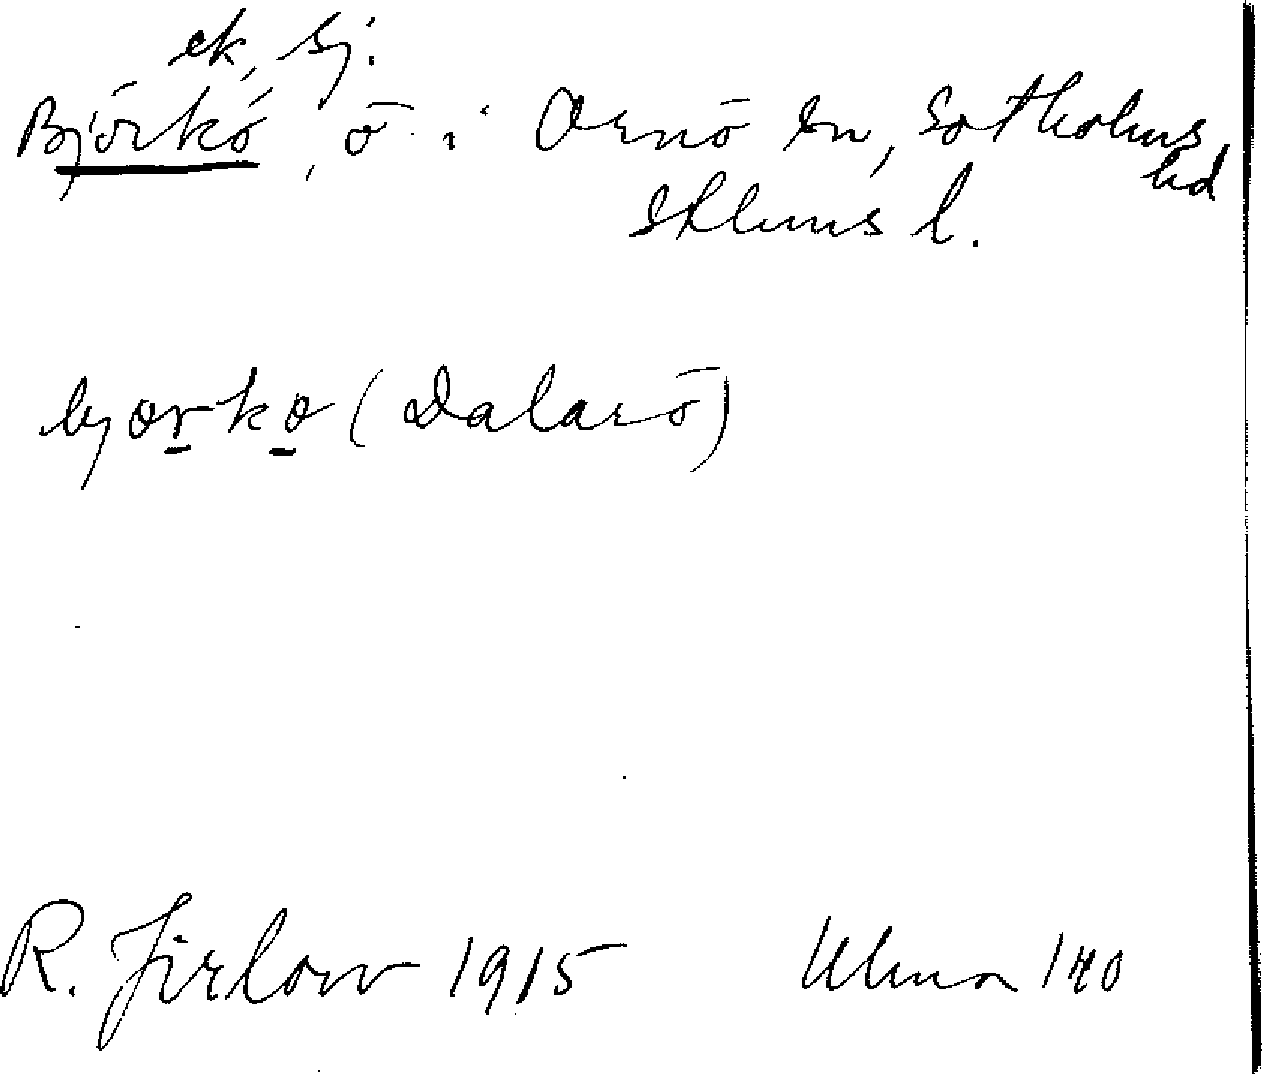 ek, sj.
Björkö, ö i Ornö sn, Sotholms
hd
Sthlms l.
bjørkø (Dalarö)
R. Jirlow 1915 Ulma 140